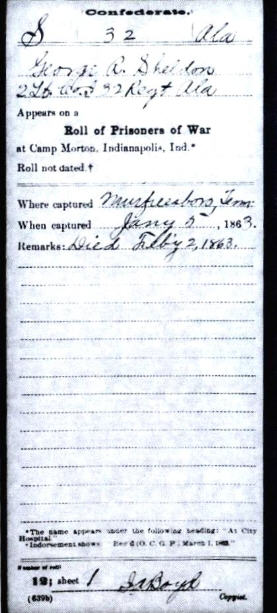 Confederate.
S 32 Ala
George R. Sheldon
2 Lt. Co. 32 Regt Ala
Appears on a
Roll of Prisoners of War
at Camp Morton, Indianapolis, Ind.*
Roll not dated.†
Where captured Murfreesboro, Tenn.
When captured Jany 5, 1863.
Remarks: Died Feby 2, 1863.
*The name appears under the following heading: "At City
Hospital."
Indorsement shows Rec'd (O. C. G. P., March 1, 1863."
Number of roll:
12; sheet 1 Boyd
(639b) Copyist.